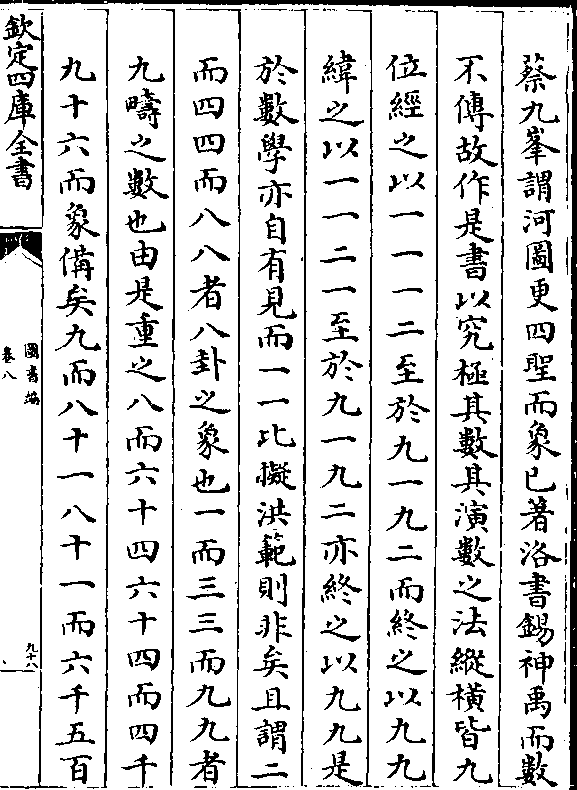 蔡九峯謂河圖更四聖而象已著洛書錫神禹而數
不傳故作是書以究極其數其演數之法縱橫皆九
位經之以一一一二至於九一九二而終之以九九
緯之以一一二一至於九一九二亦終之以九九是
於數學亦自有見而一一比擬洪範則非矣且謂二
而四四而八八者八卦之象也一而三三而九九者
九疇之數也由是重之八而六十四六十四而四千
九十六而象備矣九而八十一八十一而六千五百
欽定四庫全書
圖書編
卷八
九十八